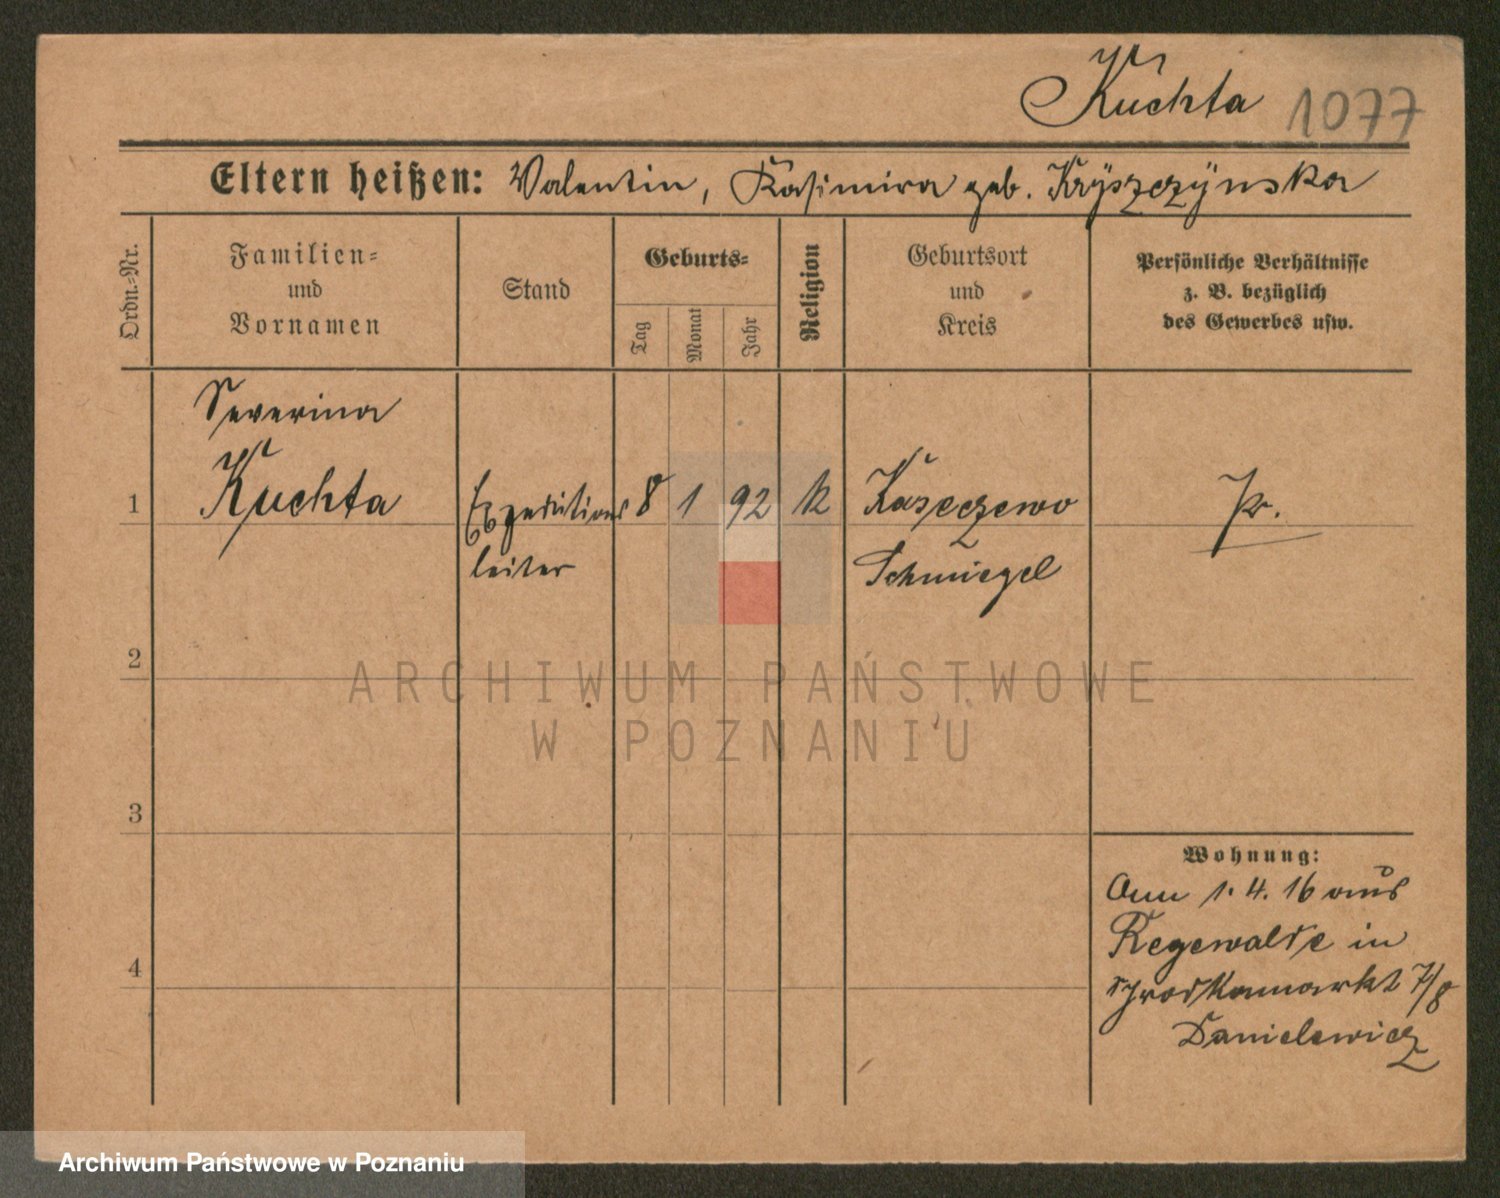 Kuchta 1077
Eltern heißen: Valentin, Kasimira geb. Kryszczynska
Ordn.-Nr.
Familien-
und
Vornamen
Stand
Geburts-
Tag
Monat
Jahr
Religion
Geburtsort
und
Kreis
Persönliche Verhältnisse
z. B. bezüglich
des Gewerbes usw.
Severina
1 Kuchta Expeditions 8 1 92 k Kaszczewo Pr.
leiter Schmiegel
2
ARCHIWUM PAŃSTWOWE
W POZNANIU
3
Wohnung:
Am 1. 4. 16 aus
Regewalde in
4
7/8
Danielewicz
Archiwum Państwowe w Poznaniu